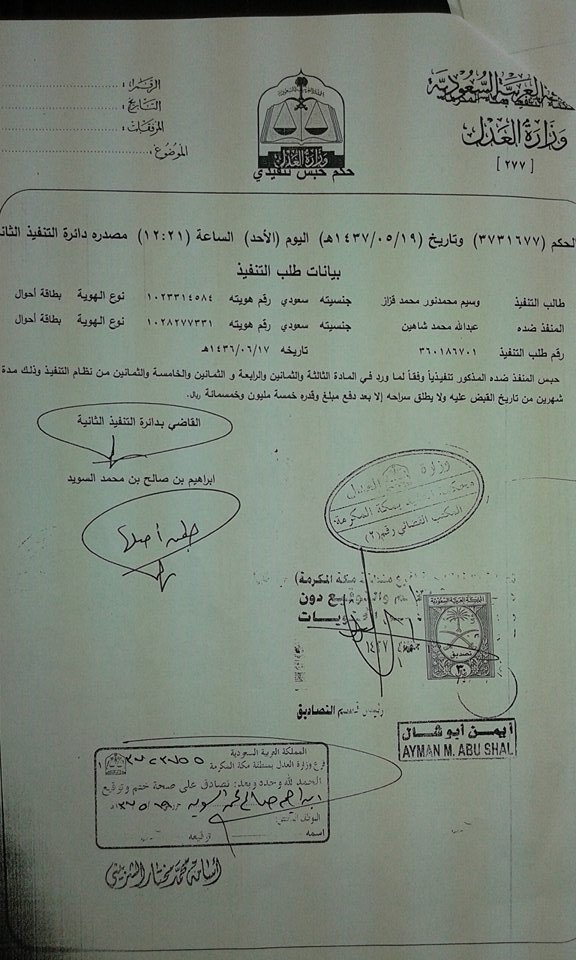 المملكة العربية السعودية
وزارة العدل
[ ٢٧٧ ]
الرقم :
التاريخ :
المرفقات :
الموضوع :
وزارة العدل
حكم حبس تنفيذي
الحكم (٣٧٣١٦٧٧) وتاريخ (١٤٣٧/٠٥/١٩هـ) اليوم (الأحد) الساعة (١٢:٢١) مصدره دائرة التنفيذ
بيانات طلب التنفيذ
طالب التنفيذ وسيم محمدنور محمد قزاز جنسيته سعودي رقم هويته ١٠٢٣٣١٤٥٨٤ نوع الهوية بطاقة أحوال
المنفذ ضده عبدالله محمد شاهين جنسيته سعودي رقم هويته ١٠٢٨٢٧٧٣٣١ نوع الهوية بطاقة أحوال
رقم طلب التنفيذ ٣٦٠١٨٦٧٠١ تاريخه ١٤٣٦/٠٦/١٧هـ
حبس المنفذ ضده المذكور تنفيذياً وفقاً لما ورد في المادة الثالثة والثمانين والرابعة و الثمانين والخامسة والثمانين من نظام التنفيذ وذلك مدة
شهرين من تاريخ القبض عليه ولا يطلق سراحه إلا بعد دفع مبلغ وقدره خمسة مليون وخمسمائة ريال.
القاضي بدائرة التنفيذ الثانية
ابراهيم بن صالح بن محمد السويد
وزارة العدل
بمكة المكرمة
المكتب القضائي رقم (٢)
منطقة مكة المكرمة)
والتوقيع دون
المملكة العربية السعودية
تصديق
٣٠
رئيس قسم التصاديق
أيمن أبو شال
AYMAN M. ABU SHAL
المملكة العربية السعودية
فرع وزارة العدل بمنطقة مكة المكرمة
الحمد لله وحده وبعد: نصادق على صحة ختم وتوقيع
اسمه توقيعه
أسامة محمد مختار الشربيني